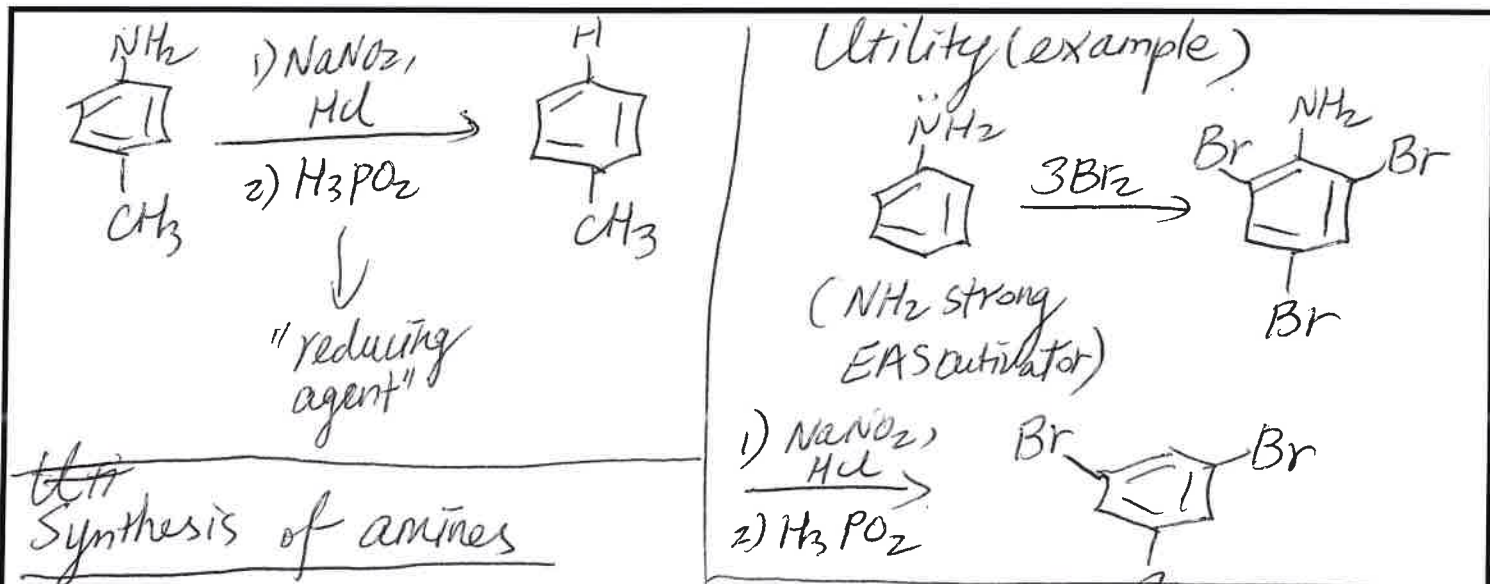 NH2
1) NaNO2,
HCl
2) H3PO2
CH3
H
CH3
"reducing
agent"
Synthesis of amines
Utility (example)
NH2
3Br2
NH2
Br
Br
Br
(NH2 strong
EAS activator)
1) NaNO2,
HCl
2) H3PO2
Br
Br